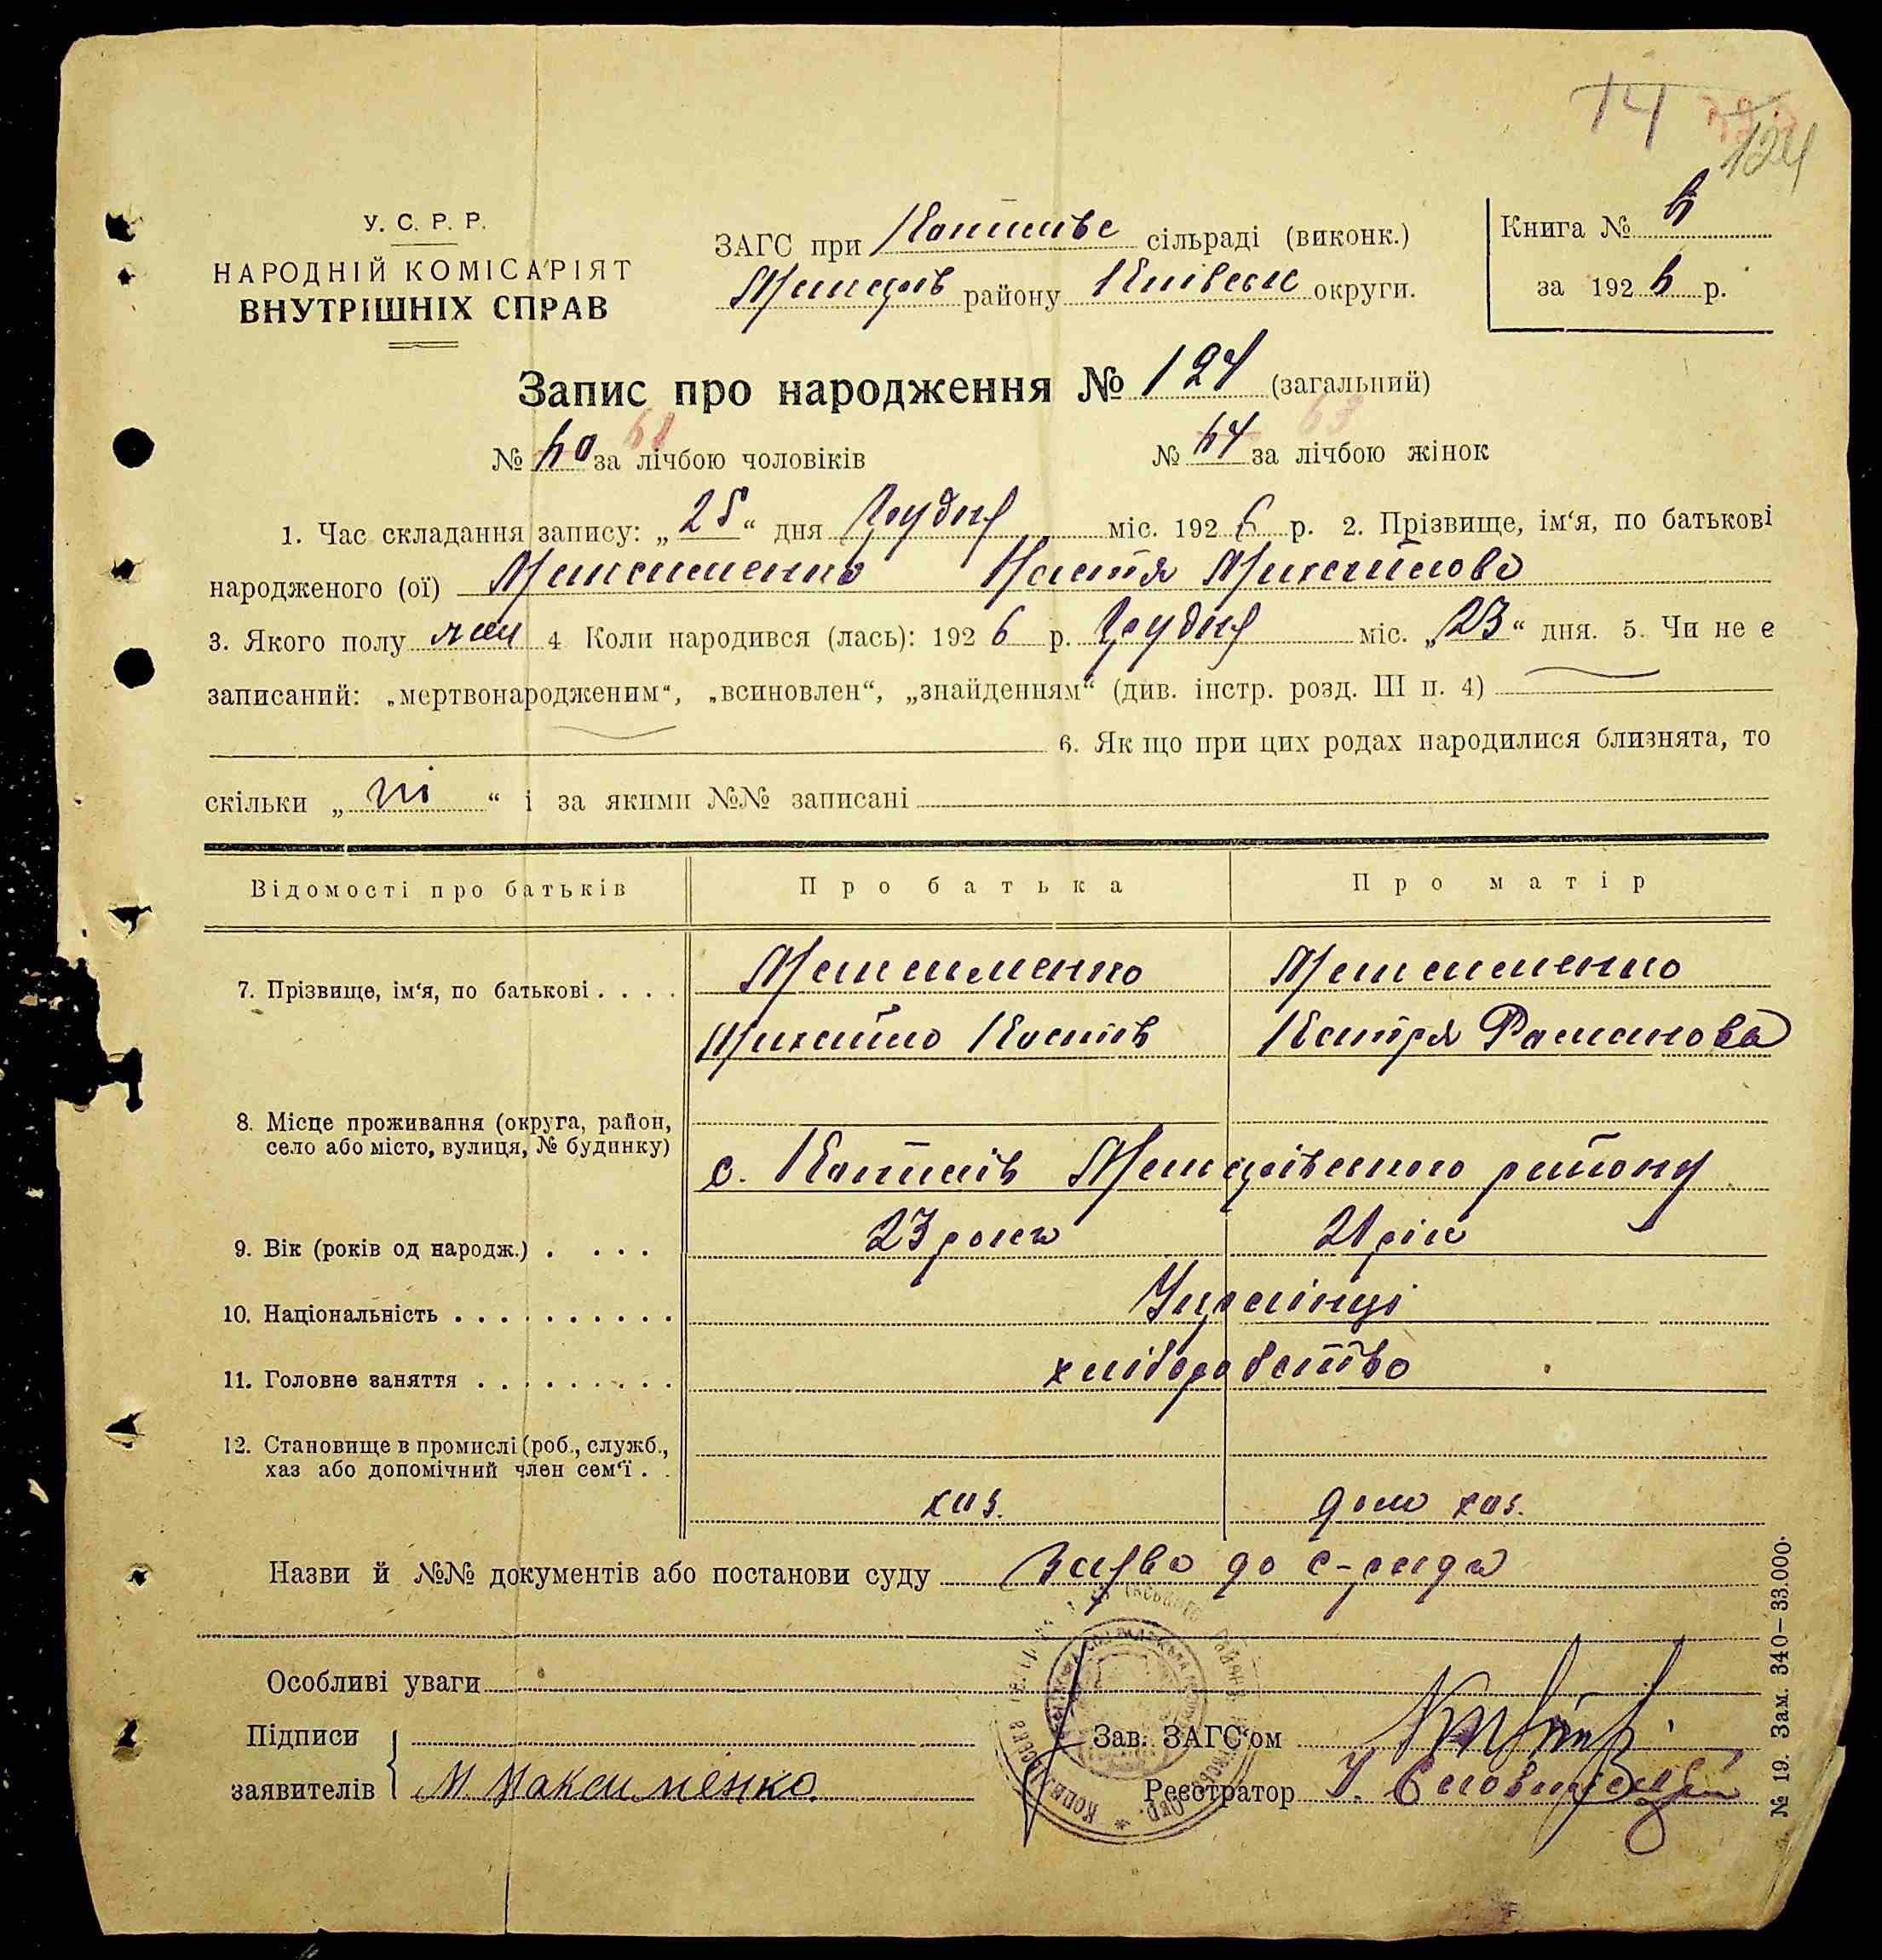 14
124
У. С. Р. Р.
НАРОДНІЙ КОМІСАРІЯТ
ВНУТРІШНІХ СПРАВ
ЗАГС при Копилове сільраді (виконк.)
Макарів району Київськ округи.
Книга № 6
за 1926 р.
Запис про народження № 124 (загальний)
№ 60 61 за лічбою чоловіків
№ 64 63 за лічбою жінок
1. Час складання запису: „25“ дня Грудня міс. 1926 р. 2. Прізвище, ім‘я, по батькові
народженого (ої) Максименко Настя Михайлова
3. Якого полу жін 4 Коли народився (лась): 1926 р. Грудня міс. „23“ дня. 5. Чи не є
записаний: „мертвонародженим“, „всиновлен“, „знайденням“ (див. інстр. розд. III п. 4)
6. Як що при цих родах народилися близнята, то
скільки „ні“ і за якими №№ записані
Відомості про батьків Про батька Про матір
7. Прізвище, ім‘я, по батькові . . . . Максименко Максименко
Михайло Костів Катря Романова
8. Місце проживання (округа, район,
село або місто, вулиця, № будинку)
с. Копилів Макарівського району
9. Вік (років од народж.) . . . . 23 роки 21 рік
10. Національність . . . . . . . . . . Українці
11. Головне заняття . . . . . . . . . хліборобство
12. Становище в промислі (роб., служб.,
хаз або допомічний член сем‘ї . .
хаз. дом хаз.
Назви й №№ документів або постанови суду Заява до с-ради
Особливі уваги
Підписи
заявителів М Максименко.
Зав. ЗАГС‘ом
Реєстратор
№ 19. Зам. 340—33.000.